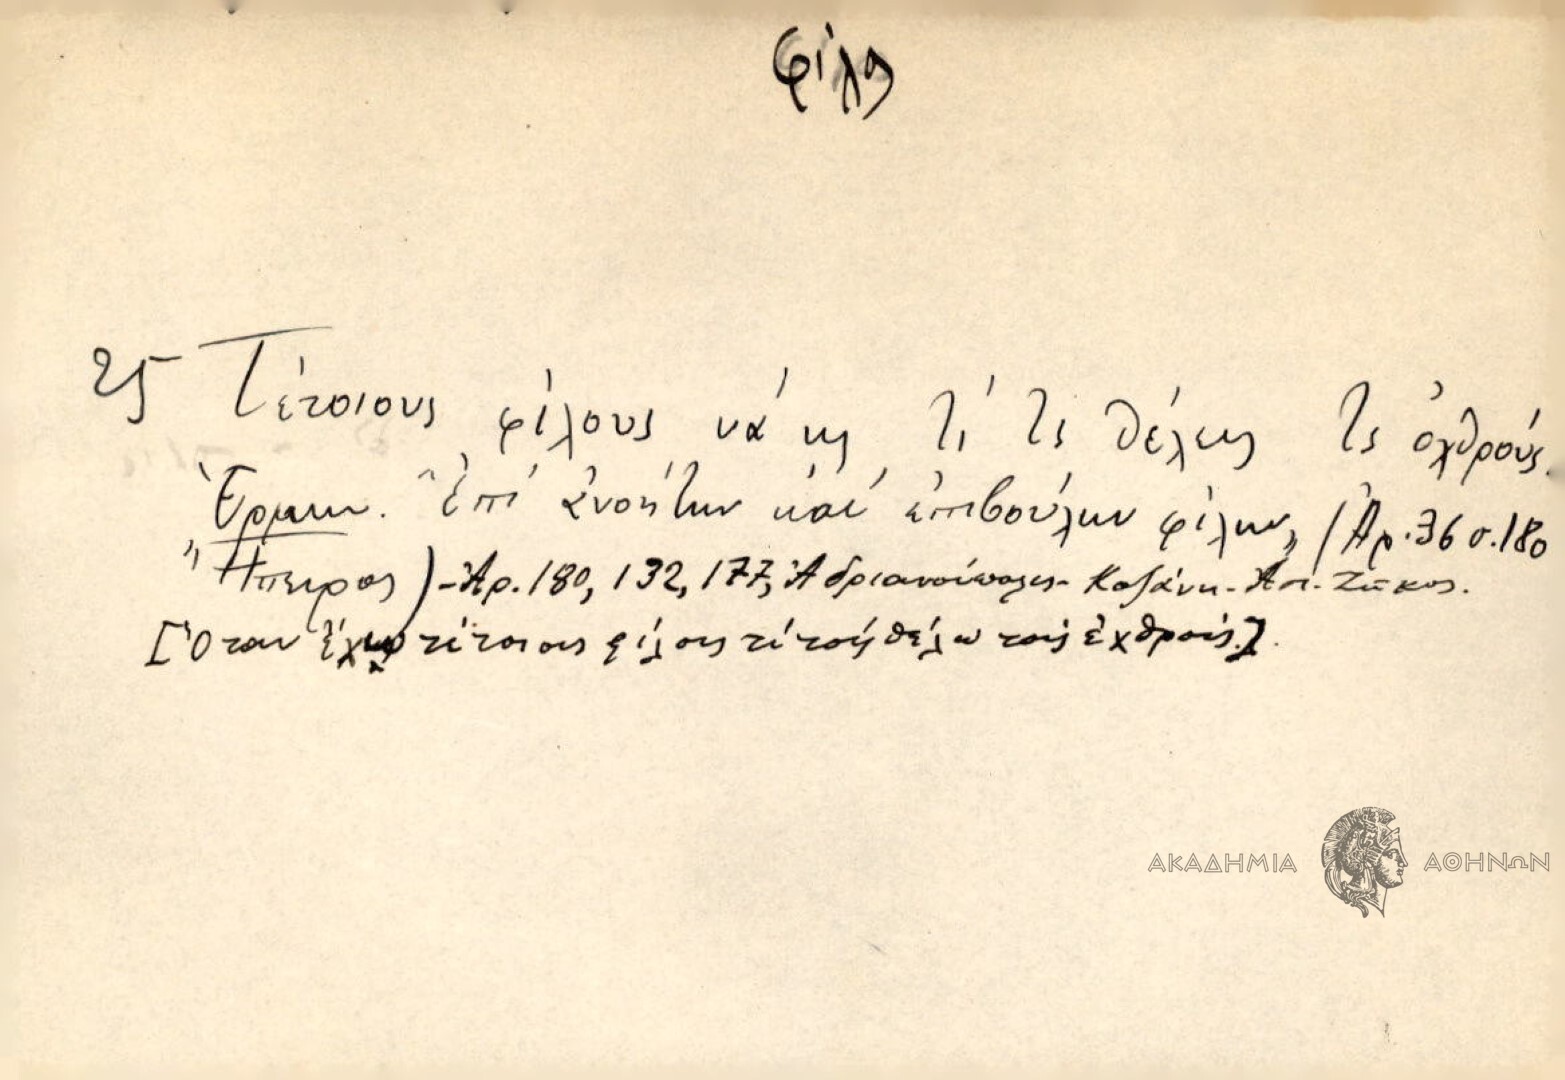 φίλος
25 Τέτοιους φίλους νάχῃς τί τς θέλεις τς ὀχθρούς.
Ἑρμην. "Ἐπί ἀνοήτων καί ἐπιβούλων φίλων" (Ἀρ. 36 σ. 180
Ἤπειρος) - Ἀρ. 180, 132, 177, Ἀδριανούπολις - Κοζάνη - Ἀπ. Ζῆκος.
[Ὅταν ἔχω τέτοιους φίλους τί τούς θέλω τούς ἐχθρούς].
ΑΚΑΔΗΜΙΑ ΑΘΗΝΩΝ